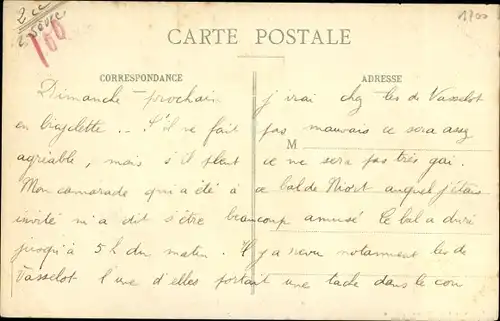 2 cc
1700
100
CARTE POSTALE
CORRESPONDANCE
ADRESSE
M
Dimanche prochain j'irai chez les de Vasselot
en bicyclette .. S'il ne fait pas mauvais ce sera assez
agréable, mais s'il pleut ce ne sera pas très gai.
Mon camarade qui a été à ce bal de Niort auquel j'étais
invité m'a dit s'être beaucoup amusé. Le bal a duré
jusqu'à 5 h du matin. Il y a notamment les de
Vasselot l'une d'elles portait une tache dans le cou